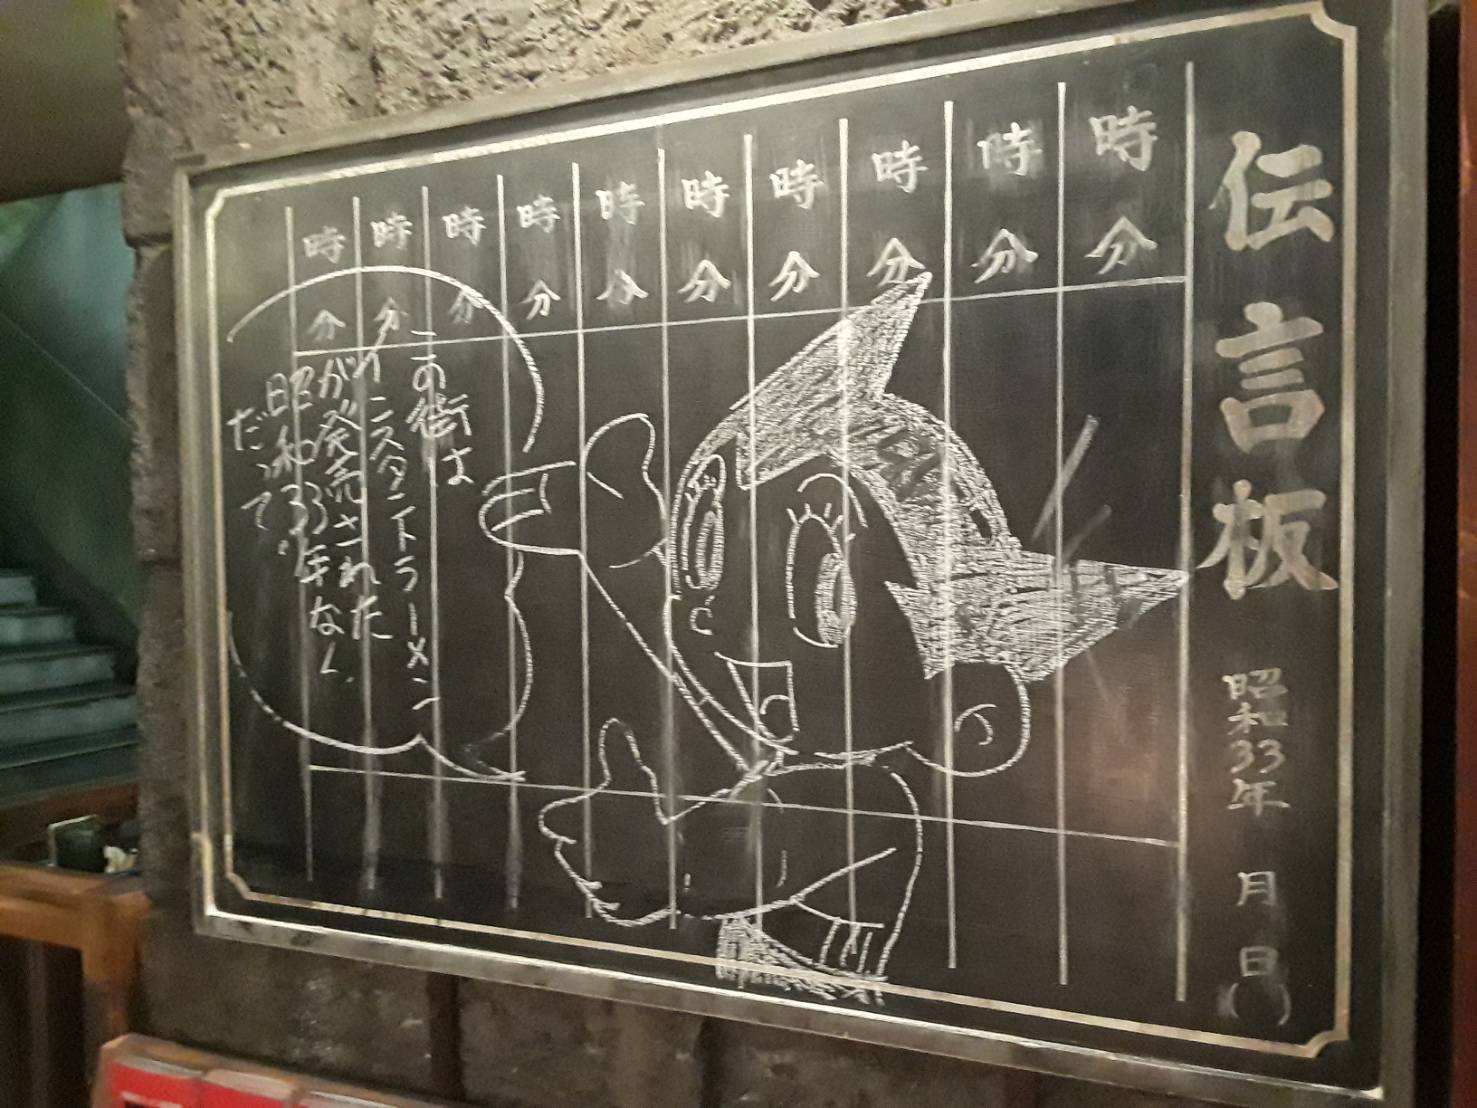 伝言板 昭和33年 月 日( )
時 分
時 分
時 分
時 分
時 分
時 分
時 分
時 分
時 分
時 分
この街は
インスタントラーメン
が発売された
昭和33年なく、
だって。